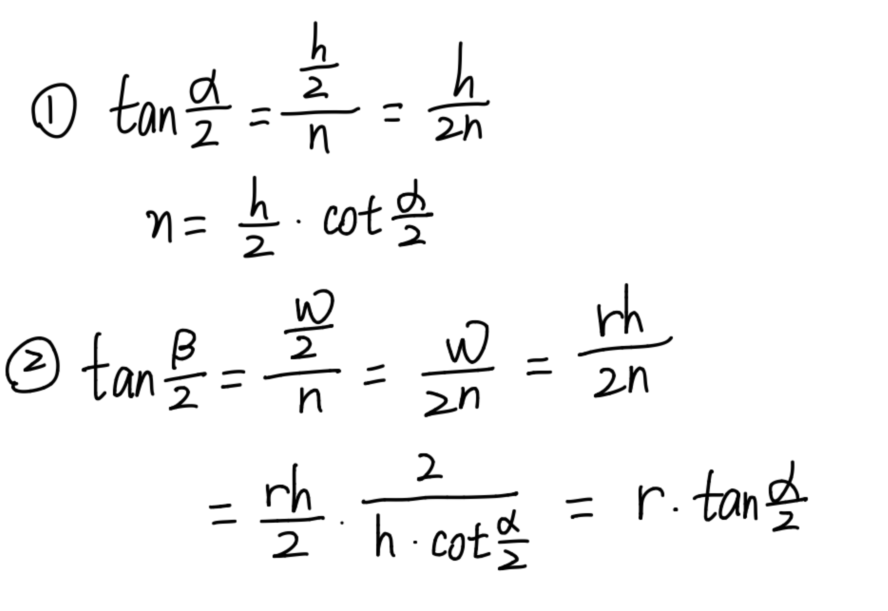 ① tan α/2 = (h/2)/n = h/2n
n = h/2 · cot α/2
② tan β/2 = (w/2)/n = w/2n = rh/2n
= rh/2 · 2/(h · cot α/2) = r · tan α/2